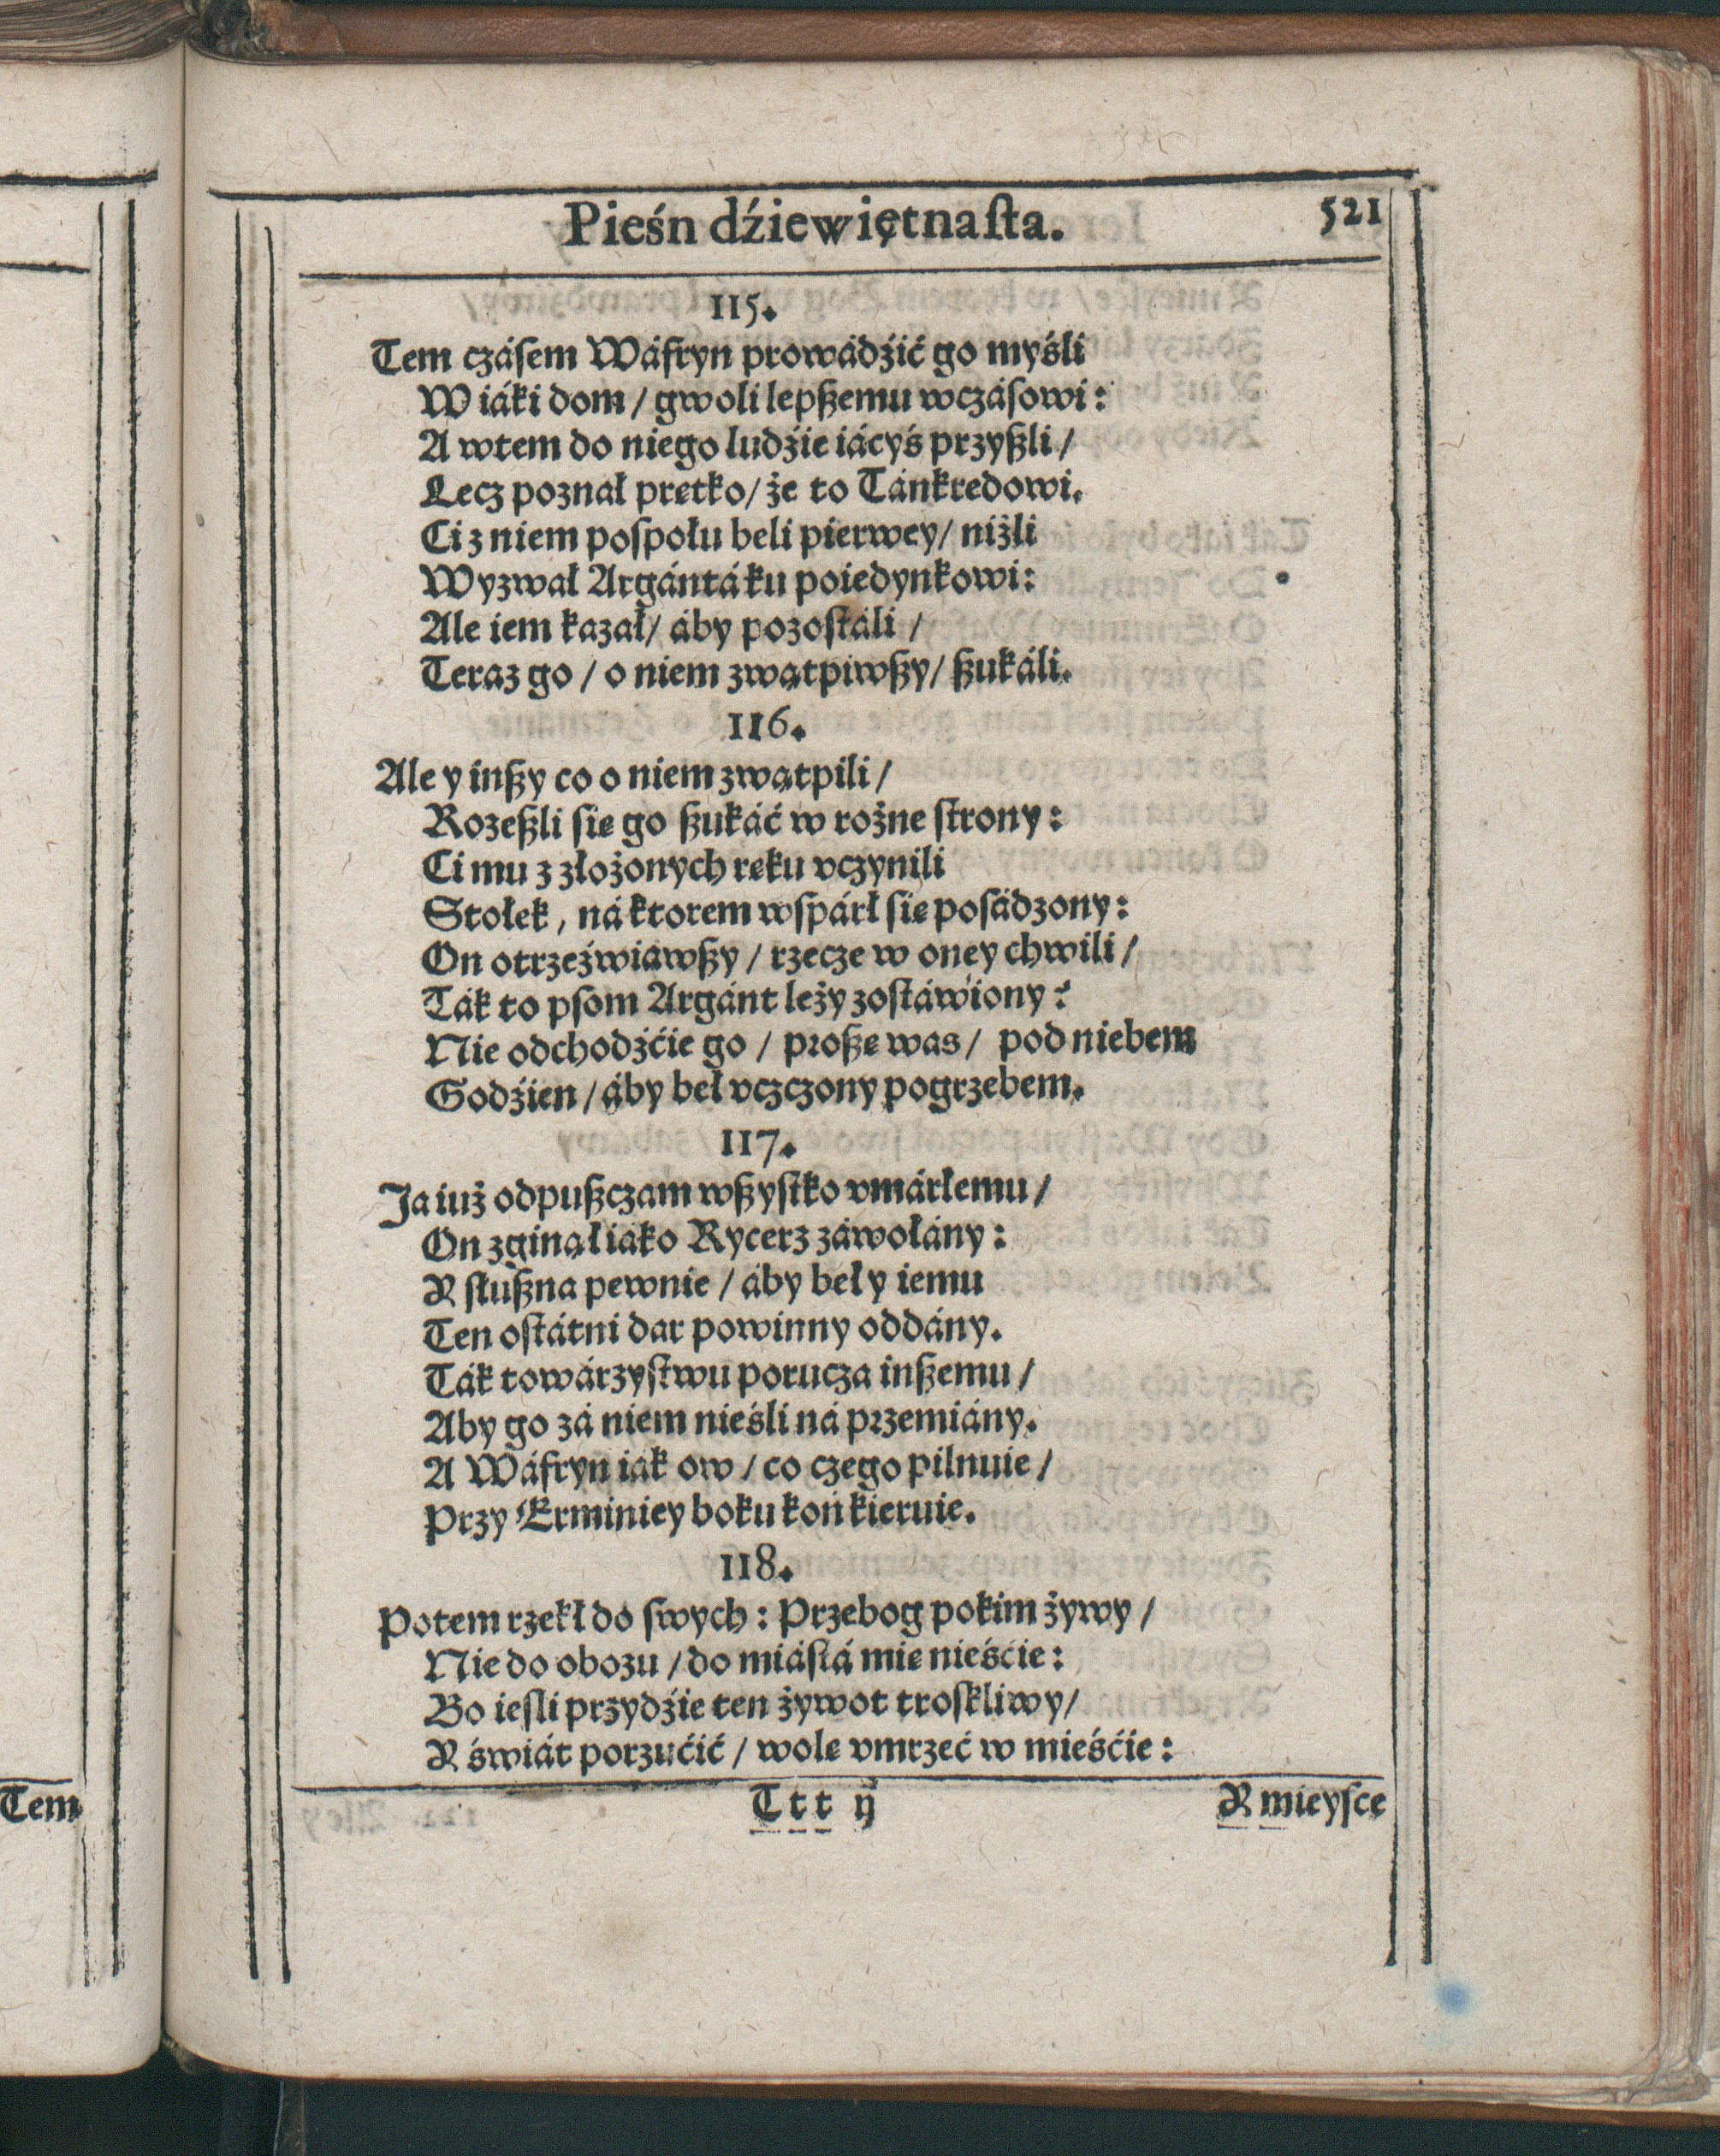 Pieśn dźiewiętnaſta.
521
115.
Tem czáſem Wáfryn prowádźić go myśli
W iáki dom / gwoli lepßemu wczáſowi:
A wtem do niego ludźie iácyś przyßli /
Lecz poznał prętko / że to Tánkredowi.
Ci z niem poſpołu beli pierwey / niżli
Wyzwał Argántá ku poiedynkowi:
Ale iem kazał / áby pozoſtáli /
Teraz go / o niem zwątpiwßy / ßukáli.
116.
Ale y inßy co o niem zwątpili /
Rozeßli ſię go ßukáć w rożne ſtrony:
Ci mu z złożonych ręku vczynili
Stołek, ná ktorem wſpárł ſię poſádzony:
On otrzeźwiawßy / rzecze w oney chwili /
Ták to pſom Argánt leży zoſtáwiony?
Nie odchodźćie go / proßę was / pod niebem
Godźien / áby beł vczczony pogrzebem.
117.
Ja iuż odpußczam wßyſtko vmárłemu /
On zginął iáko Rycerz záwołány:
Y słußna pewnie / áby beł y iemu
Ten oſtátni dar powinny oddány.
Ták towárzyſtwu porucza inßemu /
Aby go zá niem nieśli ná przemiány.
A Wáfryn iák ow / co czego pilnuie /
Przy Erminiey boku koń kieruie.
118.
Potem rzekł do ſwych: Przebog pokim żywy /
Nie do obozu / do miáſtá mię nieśćie:
Bo ieſli przydźie ten żywot troſkliwy /
Y świát porzućić / wolę vmrzeć w mieśćie:
Ttt ij
Y mieyſce
Tem